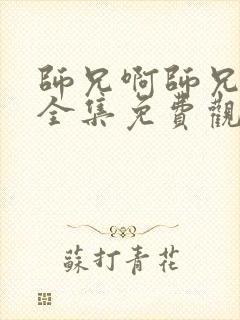 師兄啊師兄
全集免費觀
蘇打青花